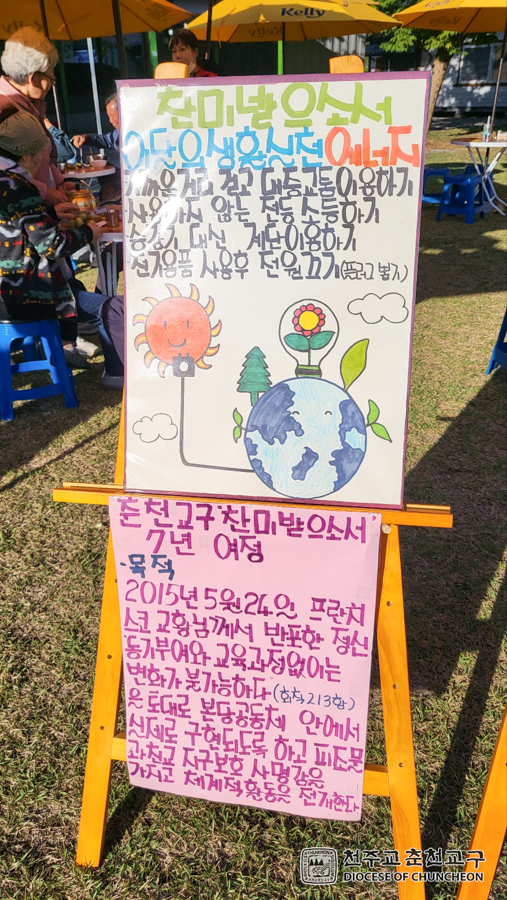 Kelly
찬미받으소서
이달의생활실천 에너지
가까운거리 걷고 대중교통이용하기
사용하지 않는 전등 소등하기
승강기 대신 계단이용하기
전기용품 사용후 전원끄기(플러그 뽑기)
춘천교구 찬미받으소서
7년 여정
·목적
2015년 5월 24일 프란치
스코 교황님께서 반포한 정신
동기부여와 교육과정없이는
변화가 불가능하다 (회칙 213항)
을 토대로 본당공동체 안에서
실제로 구현되도록 하고 피조물
과 천교 지구보호 사명감을
가지고 체계적 활동을 전개한다
천주교 춘천교구
DIOCESE OF CHUNCHEON